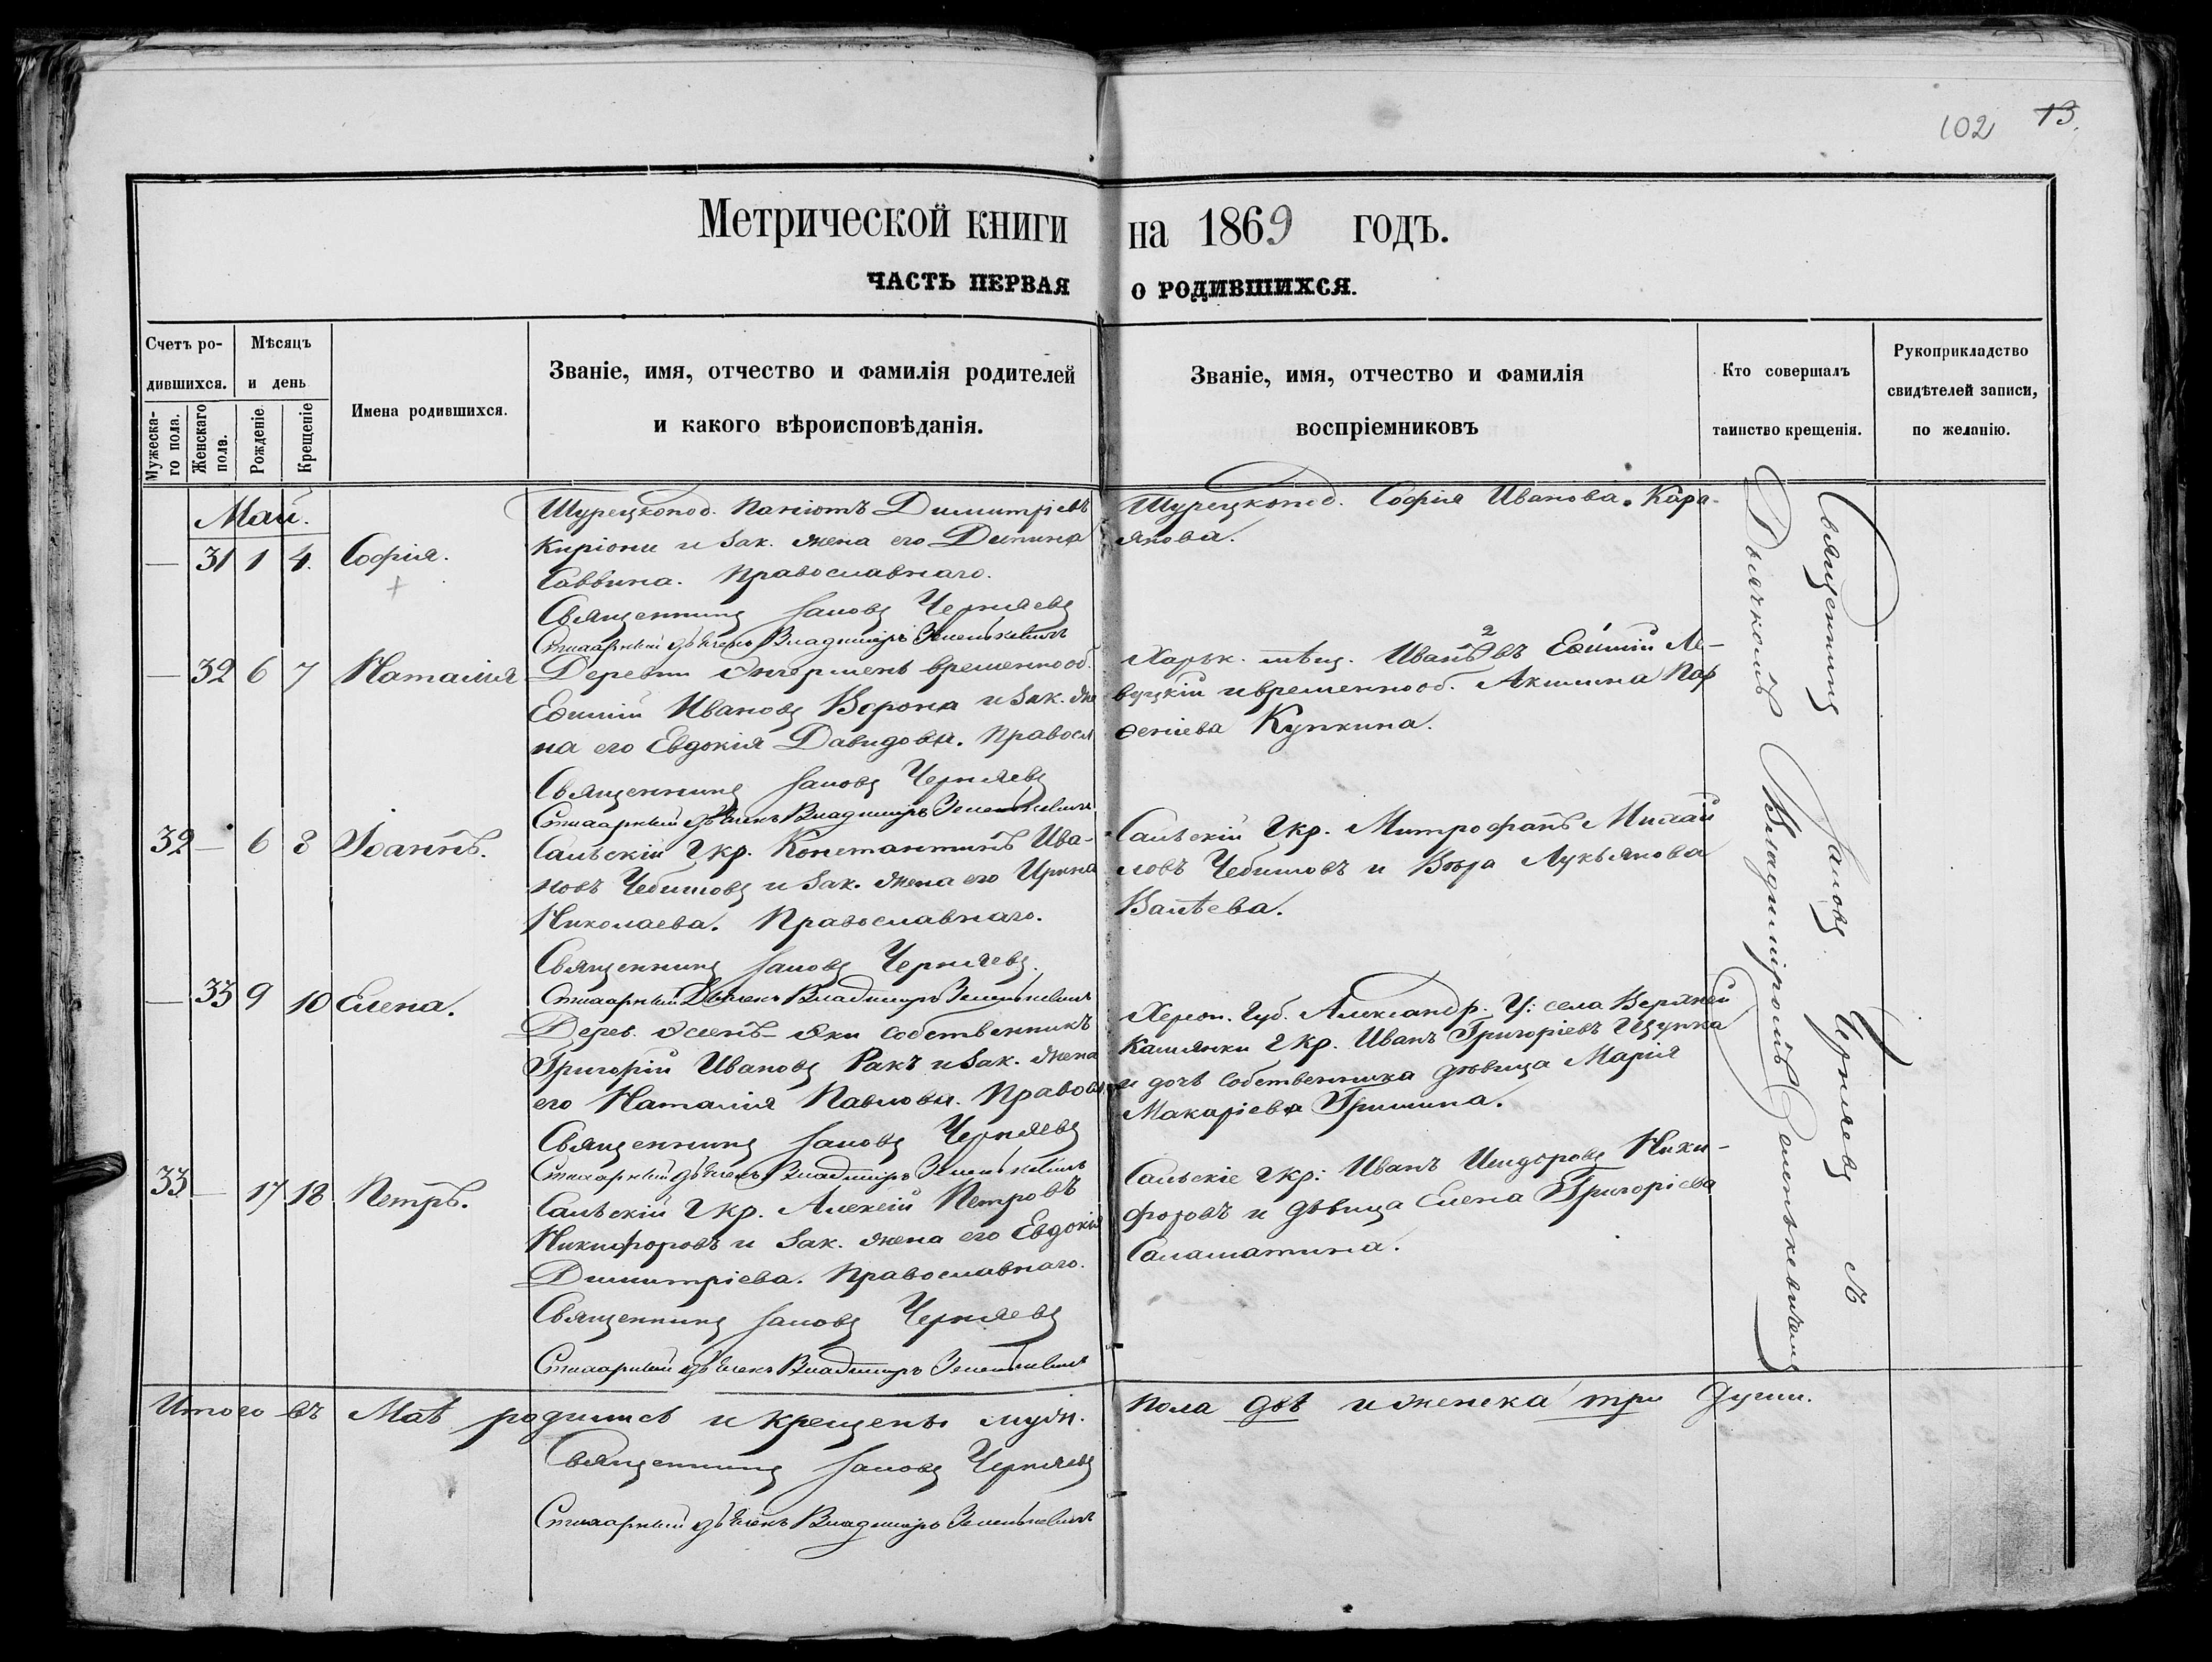 102 13.
Метрической книги на 1869 годъ.
ЧАСТЬ ПЕРВАЯ О РОДИВШИХСЯ.
Счетъ ро-
дившихся.
Мужеска-
го пола.
Женскаго
пола.
Мѣсяцъ
и день
Рожденіе.
Крещеніе
Имена родившихся.
Званіе, имя, отчество и фамилія родителей
и какого вѣроисповѣданія.
Званіе, имя, отчество и фамилія
воспріемниковъ
Кто совершалъ
таинство крещенія.
Рукоприкладство
свидѣтелей записи,
по желанію.
Май.
— 31 1 4. Софія.
Турецкопод. Панiотъ Димитріевъ
Киріони и зак. жена его Деспина
Саввина. Православнаго.
Священникъ Іаковъ Черняевъ
Стихарный дьячекъ Владиміръ Зеленькевичъ
Турецкопод. Софія Иванова Кара-
янова.
— 32 6 7 Наталія
Деревни временнооб.
Ефимій Ивановъ Ворона и зак. же
на его Евдокія Давидова. Правосл
Священникъ Іаковъ Черняевъ
Стихарный дьячекъ Владиміръ Зеленькевичъ
Харьк. мѣщ. Ефимій Ле-
вуцкій и временнооб. Акилина Пар
феніева Купкина.
32 — 6 8 Іоаннъ.
Сальскій 2 кр. Константинъ Ива-
новъ Чебишовъ и зак. жена его Ирина
Николаева. Православнаго.
Священникъ Іаковъ Черняевъ.
Стихарный Дьячекъ Владиміръ Зеленькевичъ
Сальскій 2 кр. Митрофанъ Михай
ловъ Чебишовъ и Вѣра Лукьянова
— 33 9 10 Елена.
Дерев. собственникъ
Григорій Ивановъ Ракъ и зак. жена
его Наталія Павлова. Правосл.
Священникъ Іаковъ Черняевъ
Стихарный дьячекъ Владиміръ Зеленькевичъ
Херсон. Губ. Александр. У: села Верхней
Камянки 2 кр. Иванъ Григоріевъ Щупка
и дочь собственника дѣвица Марія
Макаріева Гришина.
33 — 17 18 Петръ.
Сальскій 2 кр. Алексій Петровъ
Никифоровъ и зак. жена его Евдокія
Димитріева. Православнаго.
Священникъ Іаковъ Черняевъ
Стихарный дьячекъ Владиміръ Зеленькевичъ
Сальскіе 2 кр: Иванъ Исидоровъ Ники-
форовъ и дѣвица Елена Григоріева
Саламатина.
Священникъ Іаковъ Черняевъ съ
Дьячкомъ Владиміромъ Зеленькевичемъ
Итого въ Маѣ родились и крещены муж. пола двѣ и женска три души.
Священникъ Іаковъ Черняевъ
Стихарный дьячекъ Владиміръ Зеленькевичъ